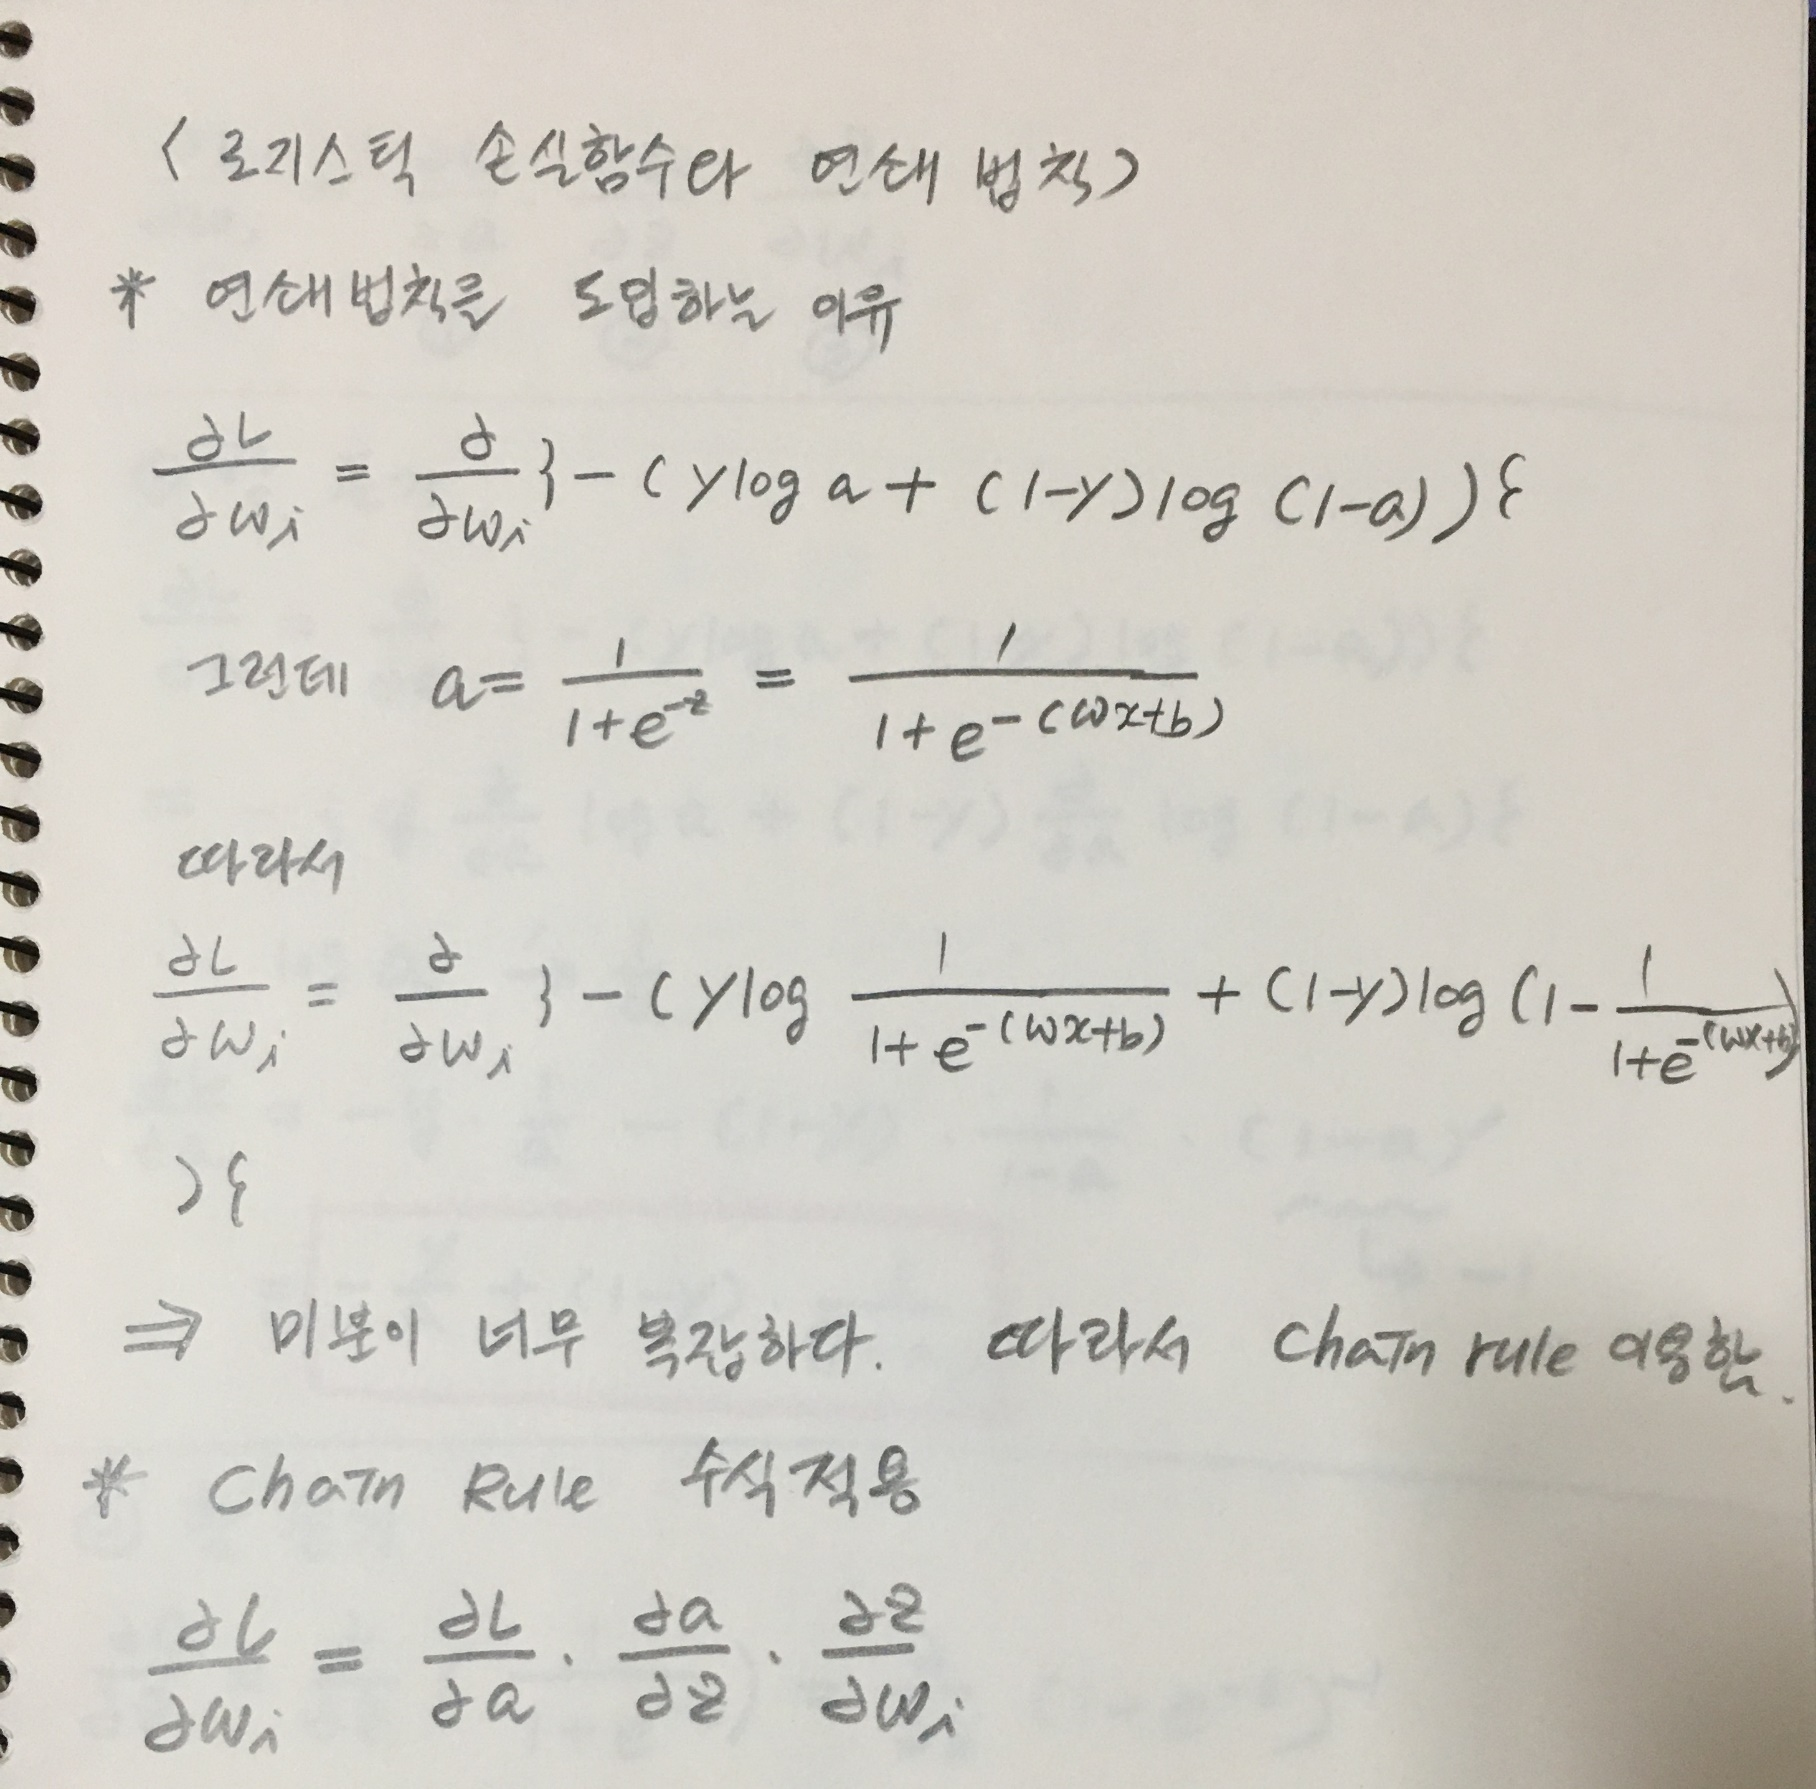 < 로지스틱 손실함수와 연쇄 법칙>
* 연쇄법칙을 도입하는 이유
∂L/∂wᵢ = ∂/∂wᵢ }-(ylog a + (1-y)log (1-a)){
그런데 a = 1/(1+e^-z) = 1/(1+e^-(wx+b))
따라서
∂L/∂wᵢ = ∂/∂wᵢ }-(ylog 1/(1+e^-(wx+b)) + (1-y)log(1- 1/(1+e^-(wx+b)))
){
⇒ 미분이 너무 복잡하다. 따라서 chain rule 이용한.
* Chain Rule 수식 적용
∂L/∂wᵢ = ∂L/∂a · ∂a/∂z · ∂z/∂wᵢ